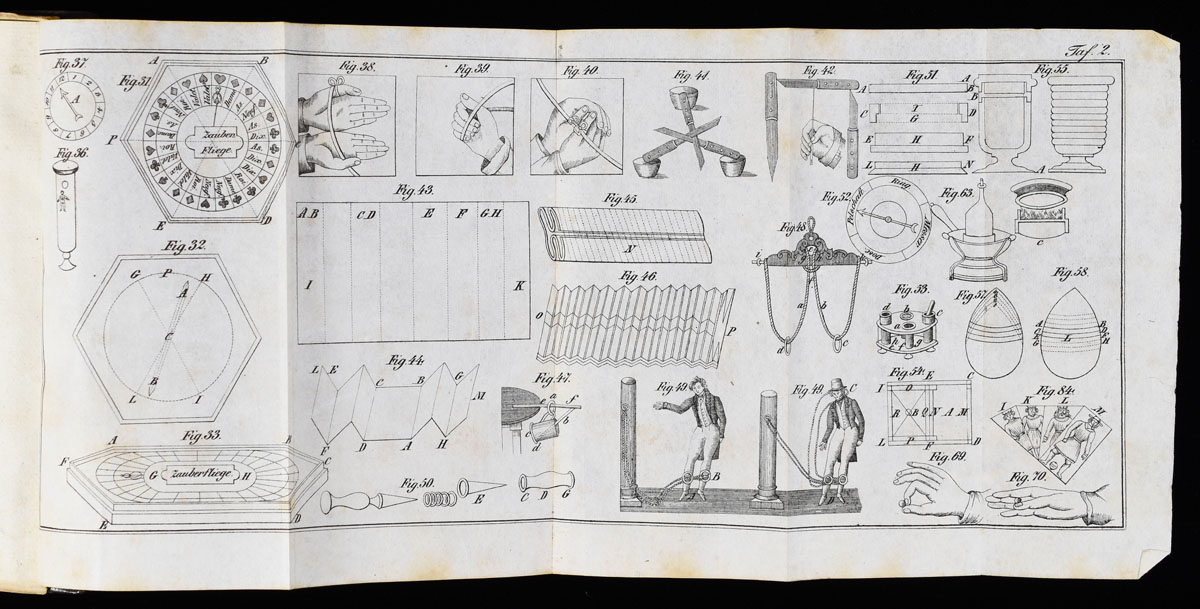 Taf. 2.
Fig. 37.
A
Fig. 31.
A B
P
E D
Zauber
Fliege.
Fig. 36.
Fig. 32.
G P H
A
C
B
L I
Fig. 33.
A B
F G Zauberfliege H C
E D
Fig. 38.
Fig. 39.
Fig. 40.
Fig. 41.
Fig. 42.
Fig. 43.
A B C D E F G H
I K
Fig. 44.
L E C B G
M
F D A H
Fig. 45.
N
Fig. 46.
O P
Fig. 47.
a
e f
b
c
d
Fig. 48.
i k
a b
d c
Fig. 49.
B
Fig. 49.
C
D
Fig. 50.
E
C D G
Fig. 51.
A A
B
C T D
G
E H F
L H N
Fig. 55.
B
A
Fig. 52.
Ring
Messer
Fig. 63.
C
Fig. 53.
d b c
a
h g
e f
Fig. 57.
Fig. 58.
A B
L
H
Fig. 54.
I O E C
R B Q N A M
L P F D
Fig. 84.
I K L M
Fig. 69.
Fig. 70.